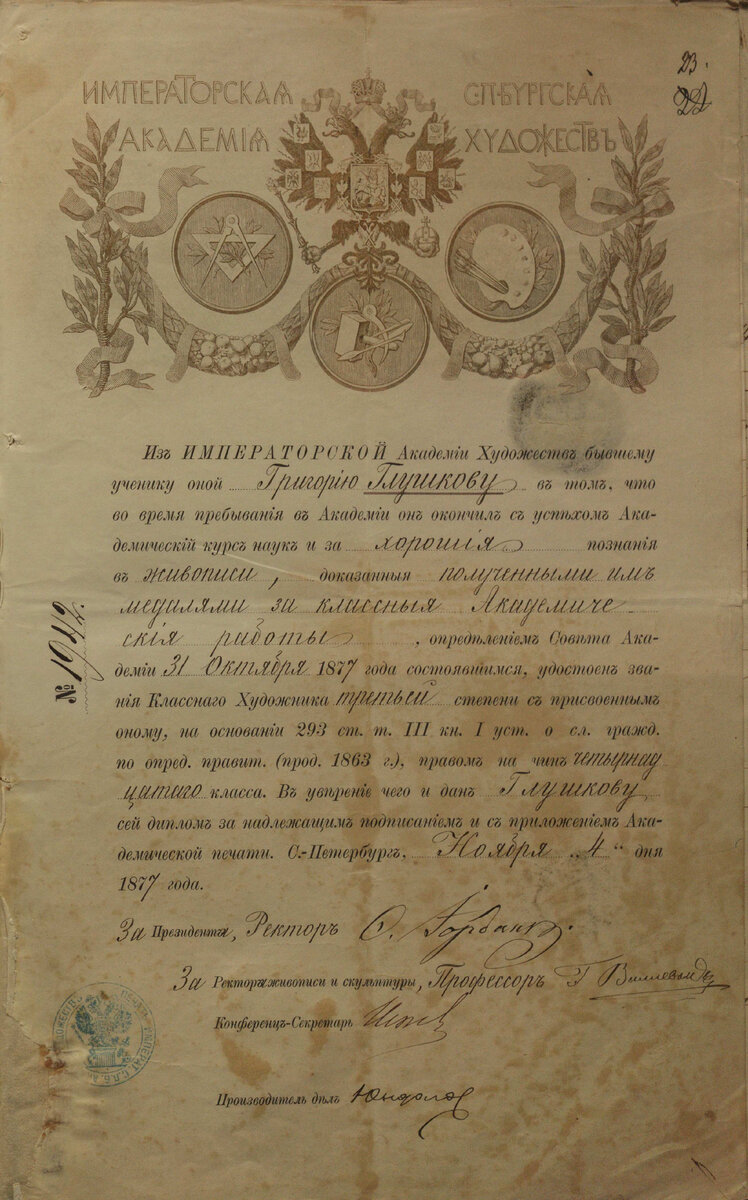 23.
22
ИМПЕРАТОРСКАЯ С.П.БУРГСКАЯ
АКАДЕМІЯ ХУДОЖЕСТВЪ
Изъ ИМПЕРАТОРСКОЙ Академіи Художествъ бывшему
ученику оной Григорію Глушкову въ томъ, что
во время пребыванія въ Академіи онъ окончилъ съ успѣхомъ Ака-
демическій курсъ наукъ и за хорошія познанія
въ живописи, доказанныя полученными имъ
медалями за классныя Академиче
скія работы, опредѣленіемъ Совѣта Ака-
деміи 31 Октября 1877 года состоявшимся, удостоенъ зва-
нія Класснаго Художника третьей степени съ присвоеннымъ
оному, на основаніи 293 ст. т. III кн. I уст. о сл. гражд.
по опред. правит. (прод. 1863 г.), правомъ на чинъ четырнад
цатаго класса. Въ увѣреніе чего и данъ Глушкову
сей дипломъ за надлежащимъ подписаніемъ и съ приложеніемъ Ака-
демической печати. С.-Петербургъ, Ноября „4“ дня
1877 года.
№ 1942.
За Президента, Ректоръ
За Ректора живописи и скульптуры, Профессоръ Г Виллевальде
Конференцъ-Секретарь
Производитель дѣлъ